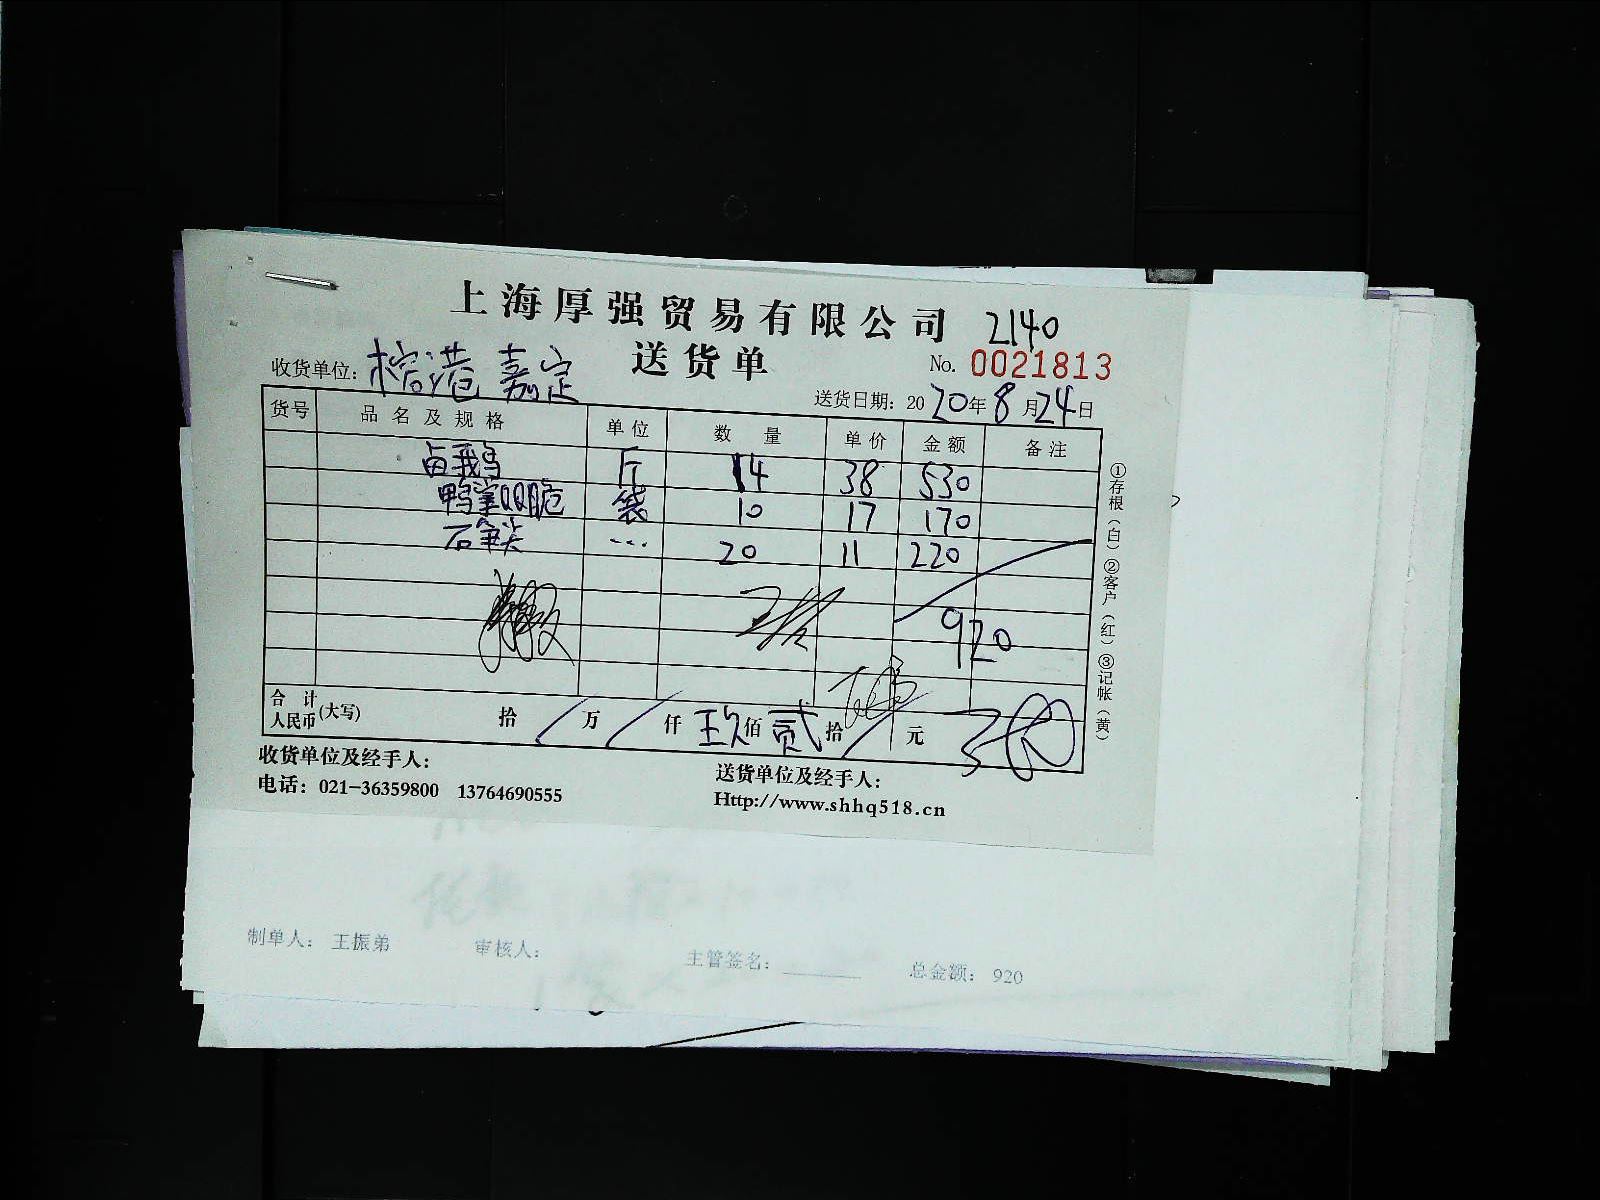 上海厚强贸易有限公司 2140
送货单 No. 0021813
收货单位: 榕港 嘉定
送货日期: 2020年8月24日
货号 品名及规格 单位 数量 单价 金额 备注
卤鹅 斤 14 38 530
鸭掌QQ脆 袋 10 17 170
石笋尖 ... 20 11 220
920
合计人民币(大写) 拾/万/仟玖佰贰拾/元
收货单位及经手人:
送货单位及经手人:
电话: 021-36359800 13764690555
Http://www.shhq518.cn
①存根(白)②客户(红)③记帐(黄)
制单人: 王振弟 审核人: 主管签名: 总金额: 920